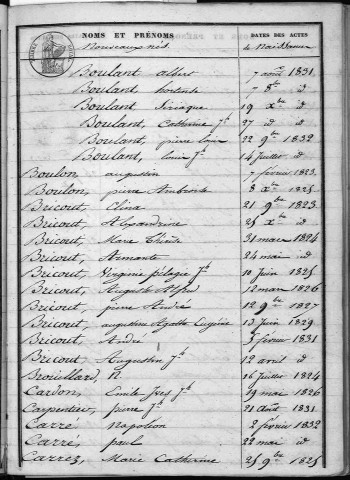 NOMS ET PRÉNOMS DATES DES ACTES
Nouveaux nés de Naissance
Boulant, albert 7 août 1831
Boulant, hortense 7 8bre id
Boulant, Siriaque 19 Xbre id
Boulant, Catherine Jh 27 id id
Boulant, pierre louis 22 9bre 1832
Boulant, louis Jh 14 Juillet id
Boulon, augustin 7 février 1823
Boulon, pierre Ambroise 8 Xbre 1825
Bricout, Elisa 21 9bre 1823
Bricout, Alexandrine 25 Xbre id
Bricout, Marie Thérèse 31 mars 1824
Bricout, Armante 24 mai id
Bricout, Virginie pélagie Jh 10 Juin 1825
Bricout, Auguste Alfred 12 mars 1826
Bricout, pierre André 12 9bre 1827
Bricout, augustine Agathe Eugénie 13 Juin 1829
Bricout, André 3 février 1831
Bricout, Augustin Jh 12 avril id
Brouillard, N. 16 Juillet 1824
Cardon, Emile Yves Jh 19 mai 1826
Carpentier, pierre Jh 21 Août 1831
Carré Napoléon 2 février 1832
Carré, paul 22 mai id
Carrez, Marie Catherine 25 9bre 1825